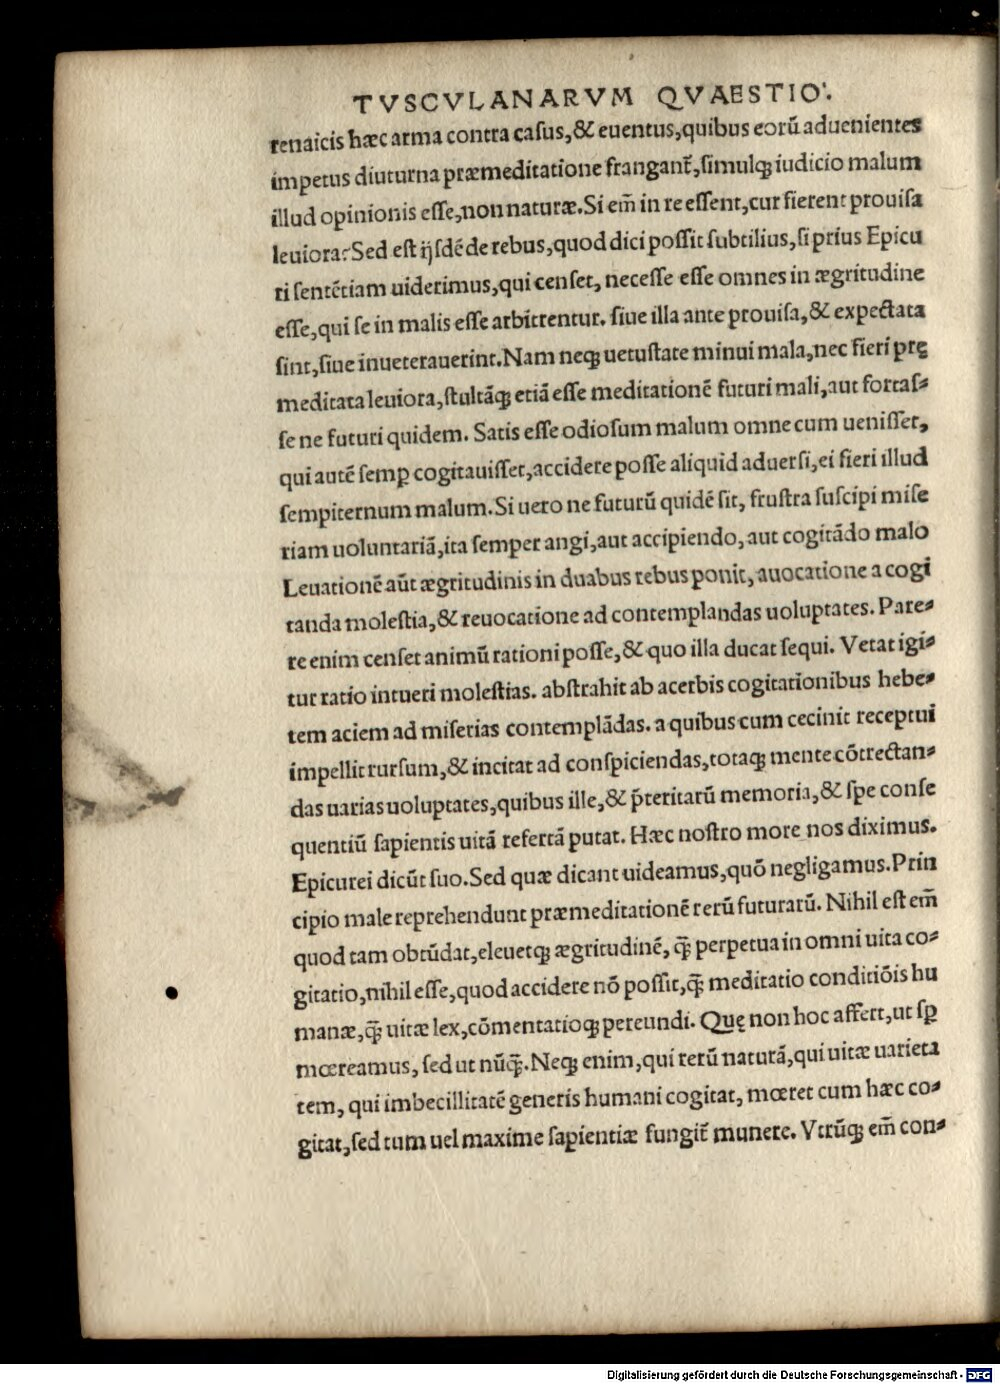 TVSCVLANARVM QVAESTIO'.
renaicis hæc arma contra caſus,& euentus,quibus eorū aduenientes
impetus diuturna præmeditatione frangant̃,ſimulq; iudicio malum
illud opinionis eſſe,non naturæ.Si em̃ in re eſſent,cur fierent prouiſa
leuiora?Sed eſt ijſdē de rebus,quod dici poſſit ſubtilius,ſi prius Epicu
ri ſentētiam uiderimus,qui cenſet, neceſſe eſſe omnes in ægritudine
eſſe,qui ſe in malis eſſe arbitrentur. ſiue illa ante prouiſa,& expectata
ſint,ſiue inueterauerint.Nam neq; uetuſtate minui mala,nec fieri prę
meditata leuiora,ſtultāq; etiā eſſe meditationē futuri mali,aut fortaſ⸗
ſe ne futuri quidem. Satis eſſe odioſum malum omne cum ueniſſet,
qui autē ſemꝑ cogitauiſſet,accidere poſſe aliquid aduerſi,ei fieri illud
ſempiternum malum.Si uero ne futurū quidē ſit, fruſtra ſuſcipi miſe
riam uoluntariā,ita ſemper angi,aut accipiendo,aut cogitādo malo
Leuationē aūt ægritudinis in duabus rebus ponit, auocatione a cogi
tanda moleſtia,& reuocatione ad contemplandas uoluptates. Pare⸗
re enim cenſet animū rationi poſſe,& quo illa ducat ſequi. Vetat igi⸗
tur ratio intueri moleſtias. abſtrahit ab acerbis cogitationibus hebe⸗
tem aciem ad miſerias contemplādas. a quibus cum cecinit receptui
impellit rurſum,& incitat ad conſpiciendas,totaq; mente cōtrectan⸗
das uarias uoluptates,quibus ille,& p̄teritarū memoria,& ſpe conſe
quentiū ſapientis uitā refertā putat. Hæc noſtro more nos diximus.
Epicurei dicūt ſuo.Sed quæ dicant uideamus,quō negligamus.Prin
cipio male reprehendunt præmeditationē rerū futurarū. Nihil eſt em̃
quod tam obtūdat,eleuetq; ægritudinē, q̃; perpetua in omni uita co⸗
gitatio,nihil eſſe,quod accidere nō poſſit,q̃; meditatio conditiōis hu
manæ,q̃; uitæ lex,cōmentatioq; pereundi. Quę non hoc affert,ut ſꝑ
mœreamus, ſed ut nūq̃;.Neq; enim,qui rerū naturā,qui uitæ uarieta
tem, qui imbecillitatē generis humani cogitat, mœret cum hæc co⸗
gitat,ſed tum uel maxime ſapientiæ fungit̃ munere. Vtrūq; em̃ con⸗
Digitalisierung gefördert durch die Deutsche Forschungsgemeinschaft - DFG